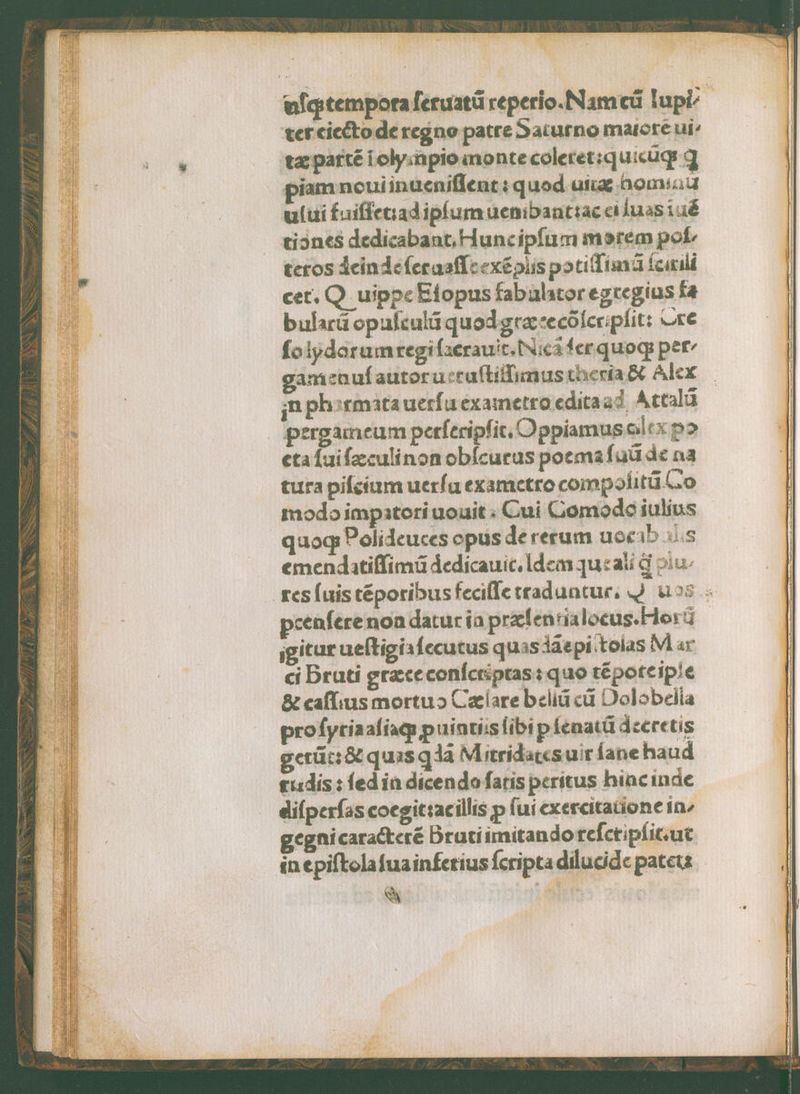 usq; tempora seruatū reperio. Nam cū Iupi-
ter eiecto de regno patre Saturno maiorē ui-
tæ partē ī olympio monte coleret: quicūq; q
piam noui inuenissent: quod uitæ hominū
usui fuisset: ad ipsum uenibant: ac ei suas īuē
tiones dedicabant. Hunc ipsum morem pos-
teros deinde seruasse exēplis potissimū scirili
cet. Q uippe Esopus fabulator egregius fa
bularū opusculū quod græce cōscripsit: Cre
so lydorum regi sacrauit. Nicāder quoq; per-
gamenus autor uetustissimus theria & Alex
in pharmata uersu exametro edita ad Attalū
pergameum perscripsit. Oppiamus cilex po
eta sui sæculi non obscurus poema suū de na
tura piscium uersu exametro compositū Co
modo impatori uouit. Cui Comodo iulius
quoq; Polideuces opus de rerum uocab lis
emendatissimū dedicauit. Idem qu ali q̄ plu-
res suis tēporibus fecisse traduntur. Q uos
pcensere non datur in præsentia locus. Horū
igitur uestigia secutus quas dā epistolas Mar
ci Bruti græce conscriptas: quo tēpore ipse
& cassius mortuo Cæsare bellū cū Dolobella
pro syria asiaq; puintiis sibi p senatū decretis
gerūt: & quas q dā Mitridates uir sane haud
rudis: sed in dicendo satis peritus hinc inde
dispersas coegit: ac illis p sui exercitatione in-
gegni caracterē Bruti imitando rescripsit. ut
in epistola sua inferius scripta dilucide patet: